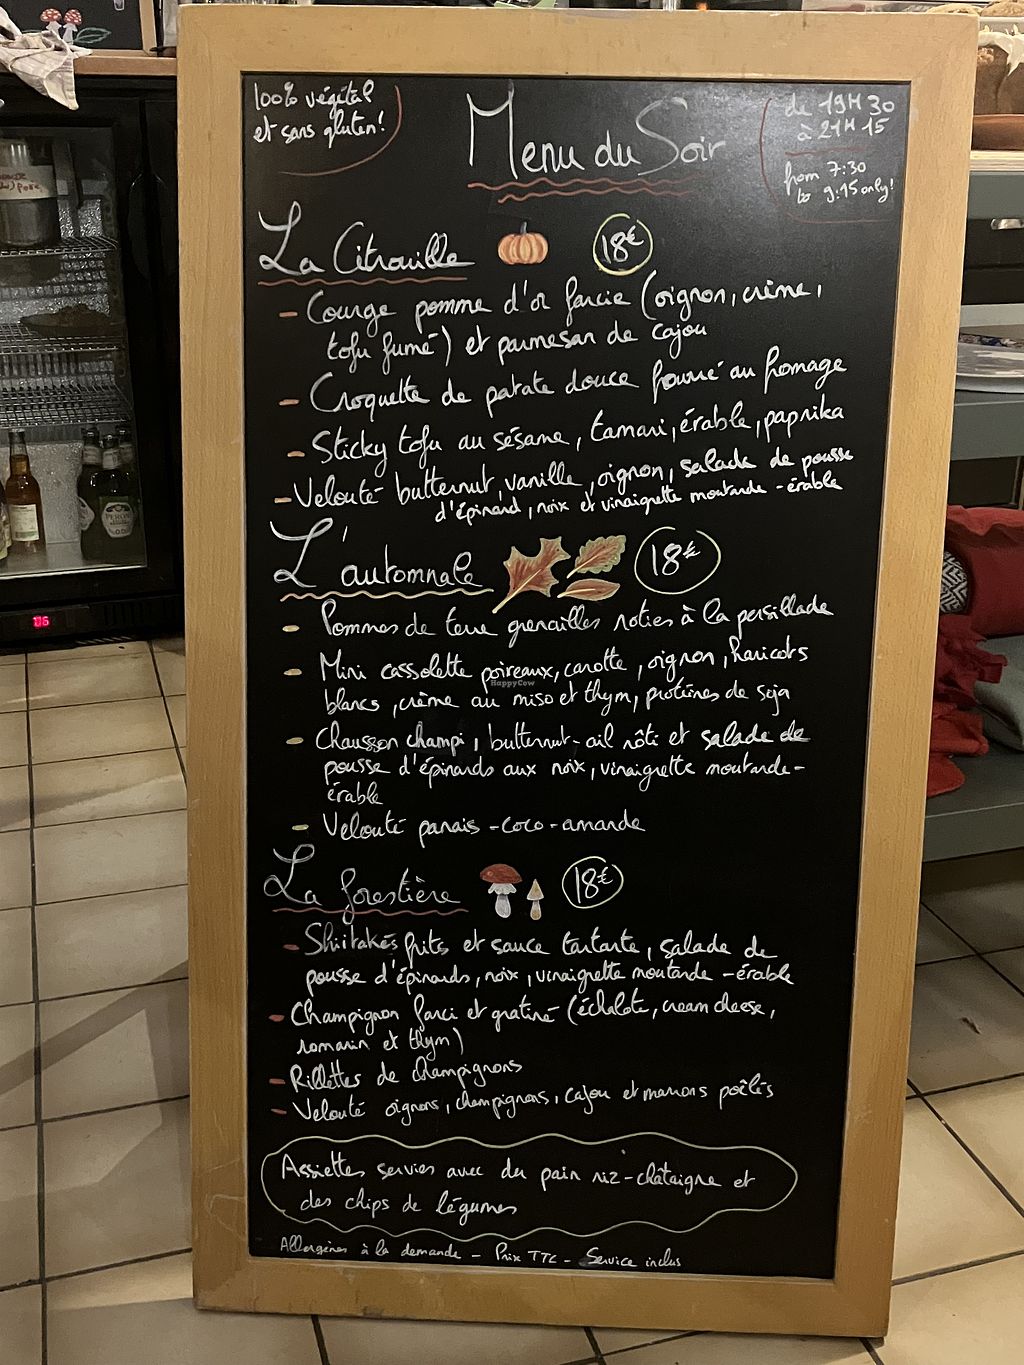 100% végétal
et sans gluten!
Menu du Soir
de 19H30
à 21H15
from 7:30
to 9:15 only!
La Citrouille 18€
- Courge pomme d'or farcie (oignon, crème,
tofu fumé) et parmesan de cajou
- Croquette de patate douce fourré au fromage
- Sticky tofu au sésame, tamari, érable, paprika
- Velouté butternut, vanille, oignon, salade de pousse
d'épinard, noix et vinaigrette moutarde-érable
L'automnale 18€
- Pommes de terre grenailles roties à la persillade
- Mini cassolette poireaux, carotte, oignon, haricots
blancs, crème au miso et thym, protéines de soja
- Chausson champi, butternut-ail rôti et salade de
pousse d'épinards aux noix, vinaigrette moutarde-
érable
- Velouté panais-coco-amande
La forestière 18€
- Shiitakés frits et sauce tartare, salade de
pousse d'épinards, noix, vinaigrette moutarde-érable
- Champignon farci et gratiné (échalote, cream cheese,
romarin et thym)
- Rillettes de champignons
- Velouté oignons, champignons, cajou et marrons poêlés
Assiettes servies avec du pain riz-châtaigne et
des chips de légumes
Allergènes à la demande - Prix TTC - Service inclus
HappyCow
PERONI
06